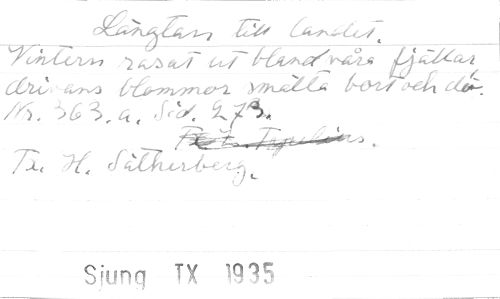 Längtan till landet.
Vintern rasat ut bland våra fjällar
drivans blommor smälta bort och dö.
Nr. 363. a. Sid. 273.
Tx. H. Sätherberg.
Sjung TX 1935